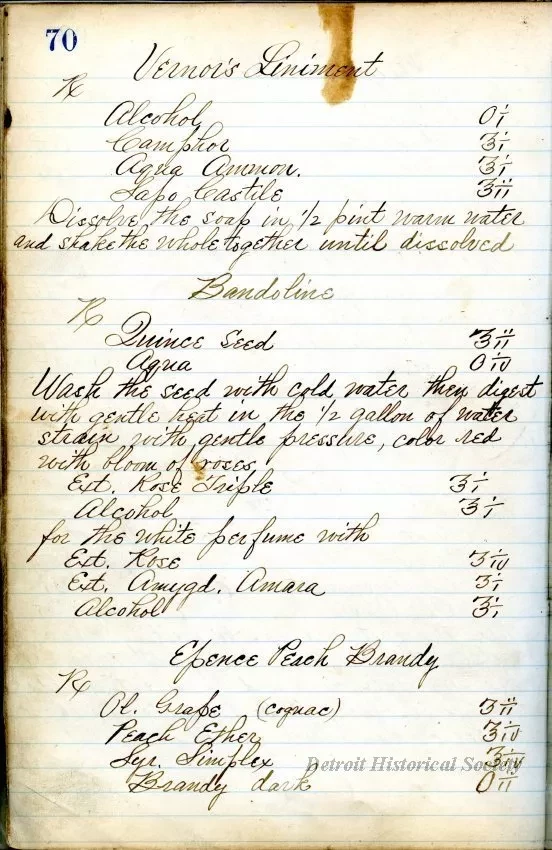 70
Vernor's Liniment
℞
Alcohol O i
Camphor ℥ i
Aqua Ammon. ℥ i
Sapo Castile ℥ ii
Dissolve the soap in 1/2 pint warm water
and shake the whole together until dissolved
Bandoline
℞
Quince Seed ℥ ii
Aqua O iv
Wash the seed with cold water then digest
with gentle heat in the 1/2 gallon of water
strain with gentle pressure, color red
with bloom of roses
Ext. Rose Triple ℥ i
Alcohol ℥ i
for the white perfume with
Ext. Rose ℥ iv
Ext. Amygd. Amara ℥ i
Alcohol ℥ i
Essence Peach Brandy
℞
Ol. Grape (cognac) ℥ ii
Peach Ether ℥ iv
Syr. Simplex ℥ iv
Brandy dark O ii
Detroit Historical Society